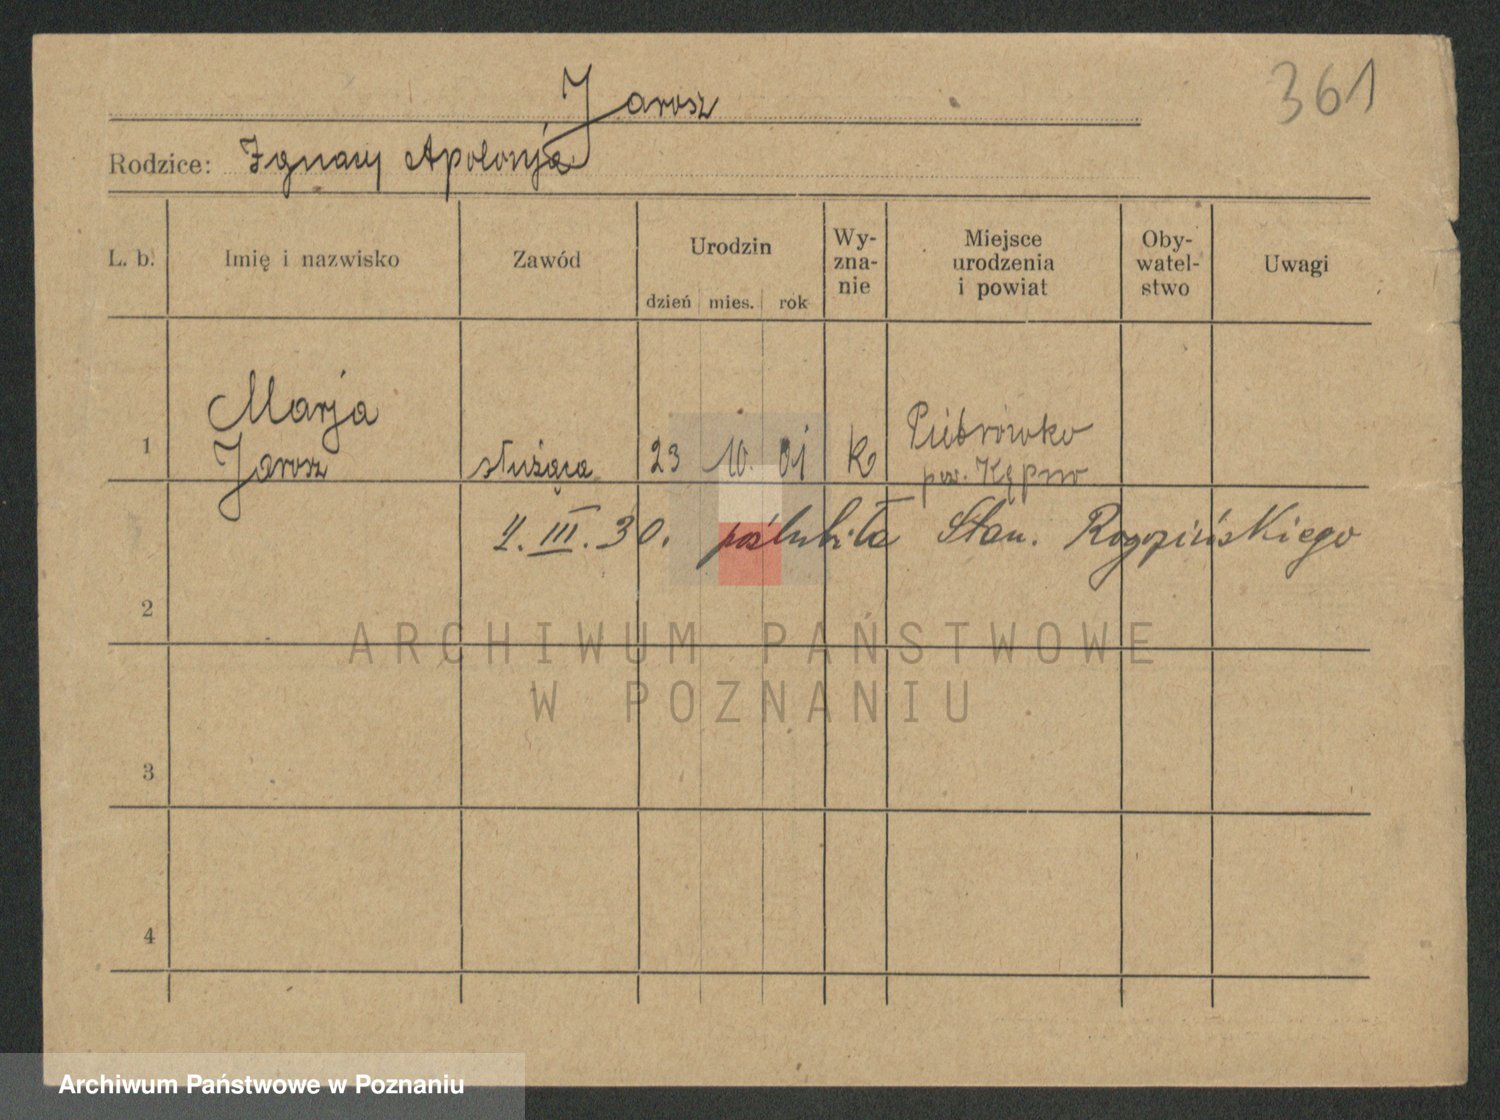 361
Jarosz
Rodzice: Ignacy Apolonja
L. b. Imię i nazwisko Zawód Urodzin Wy-zna-nie Miejsce urodzenia i powiat Oby-watel-stwo Uwagi
dzień mies. rok
Marja
1 Jarosz służąca 23 10. 01 k
pow. Kępno
4. III. 30. poślubiła Stan. Rogozińskiego
2
ARCHIWUM PAŃSTWOWE
W POZNANIU
3
4
Archiwum Państwowe w Poznaniu